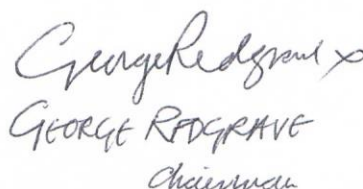 George Redgrave x
GEORGE REDGRAVE
Chairman